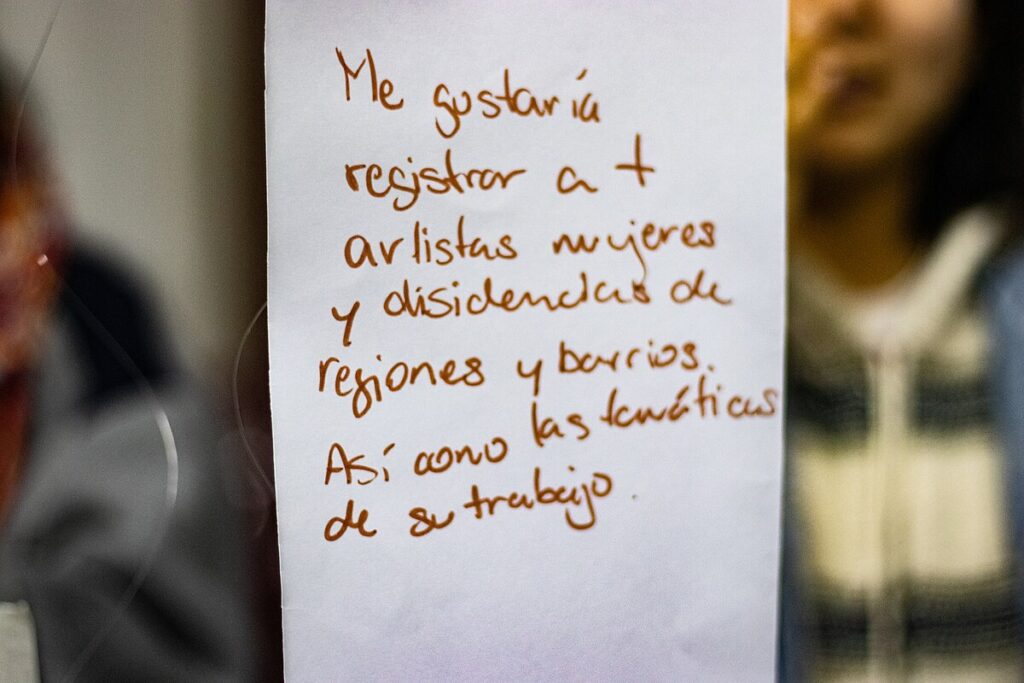 Me gustaría
registrar a +
artistas mujeres
y disidencias de
regiones y barrios.
Así como las temáticas
de su trabajo.